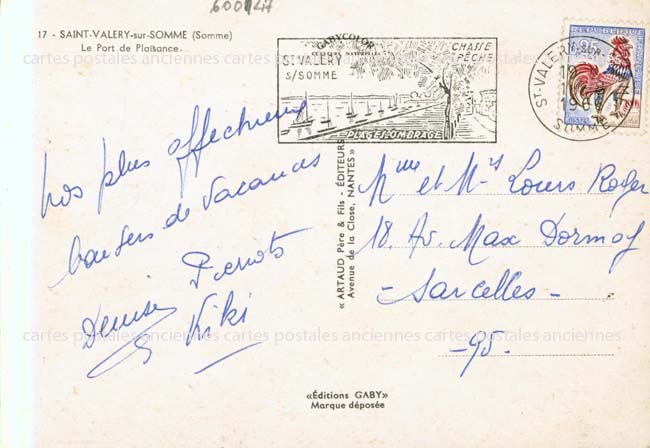 600127
17 - SAINT-VALERY-sur-SOMME (Somme)
Le Port de Plaisance.
GABYCOLOR
ST VALERY
S/SOMME
CHASSE
PÊCHE
PLAGE OMBRAGÉE
ST-VALERY-SUR-
SOMME
REPUBLIQUE FRANCAISE
Nos plus affectueux
baisers de vacances
Denise Pierrots
Kiki
« ARTAUD Père & Fils - ÉDITEURS
Avenue de la Close, NANTES »
Mme et Mr Louis Roger
18. Av. Max Dormoy
- Sarcelles -
- 95 -
cartes postales anciennes cartes postales anciennes cartes postales anciennes
«Éditions GABY»
Marque déposée